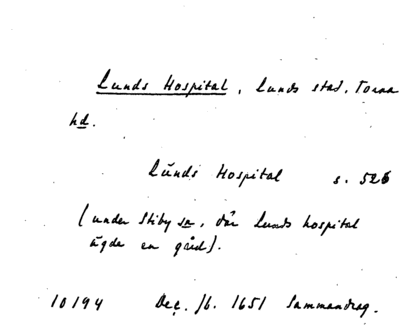 Lunds Hospital, Lunds stad, Torna
hd.
Lŭnds Hospital s. 526
(under Stiby sn, där Lunds hospital
ägde en gård).
10194 Dec. Jb. 1651 Sammandrag.